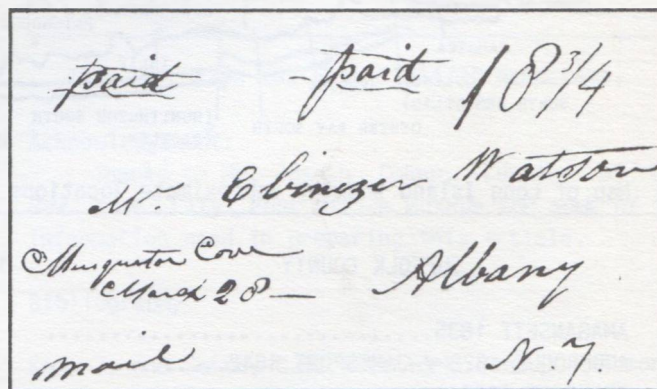 paid paid 18 3/4
Mr Ebinezer Watson
Musqueton Cove
March 28 — Albany
mail N.Y.